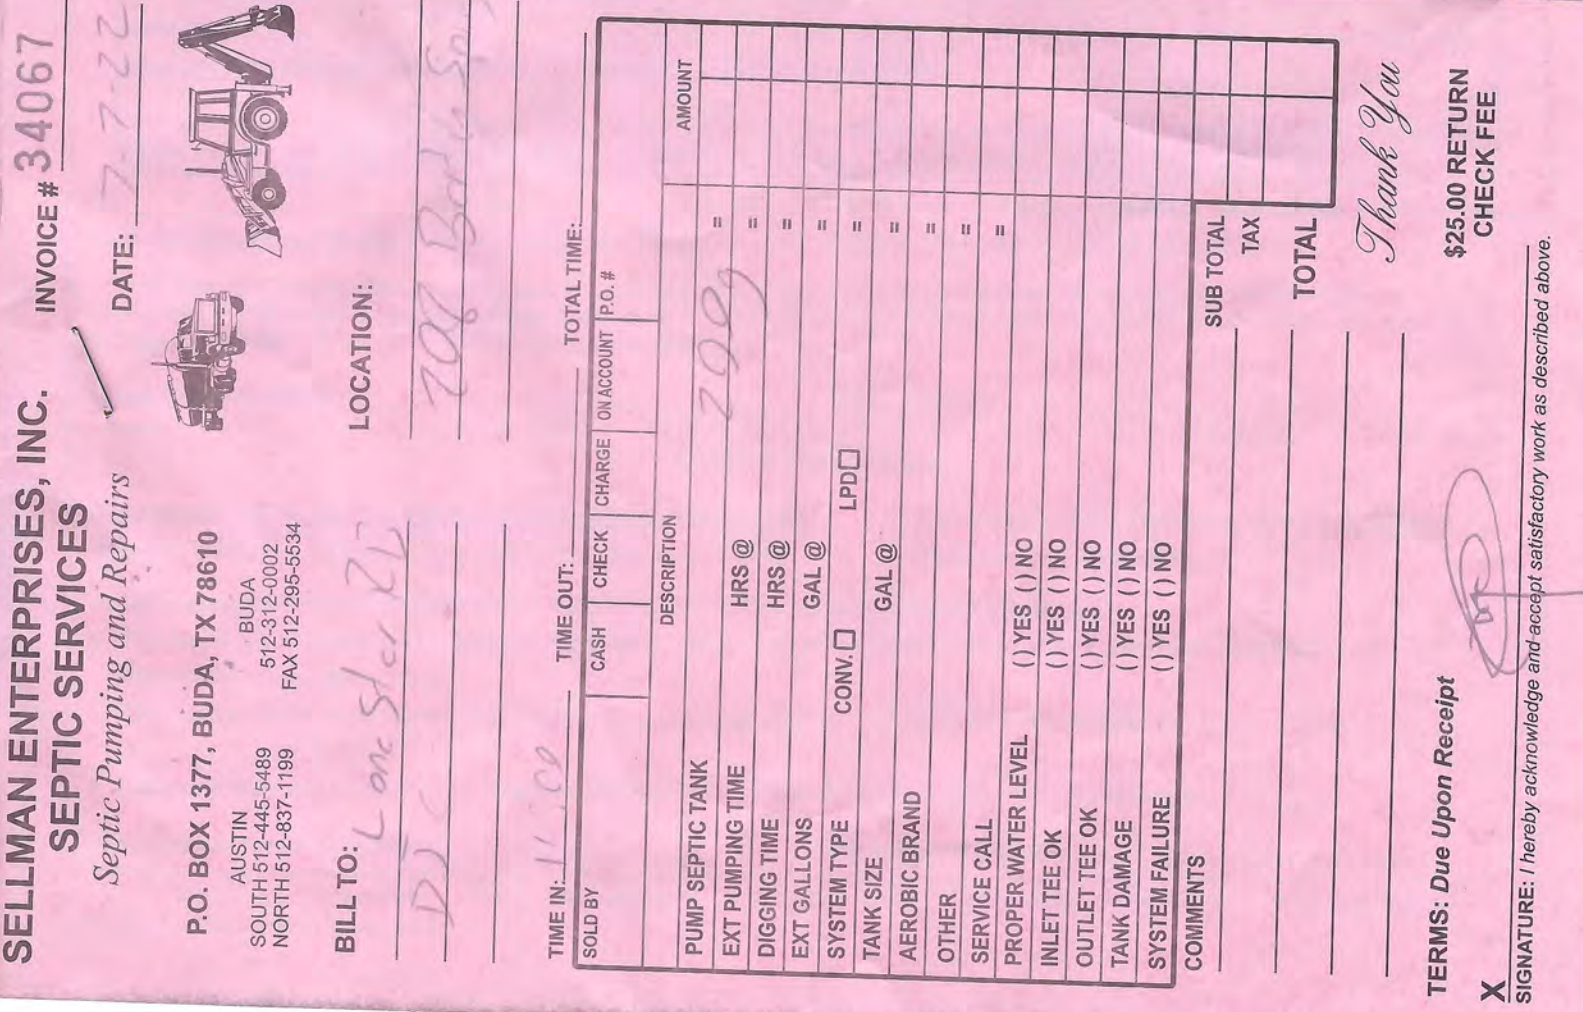 SELLMAN ENTERPRISES, INC.
SEPTIC SERVICES
Septic Pumping and Repairs
INVOICE # 34067
DATE: 7-7-22
P.O. BOX 1377, BUDA, TX 78610
AUSTIN
SOUTH 512-445-5489
NORTH 512-837-1199
BUDA
512-312-0002
FAX 512-295-5534
BILL TO: Lone Star RV
LOCATION:
TIME IN:
TIME OUT:
TOTAL TIME:
SOLD BY
CASH
CHECK
CHARGE
ON ACCOUNT
P.O. #
DESCRIPTION
AMOUNT
PUMP SEPTIC TANK
EXT PUMPING TIME HRS @ =
DIGGING TIME HRS @ =
EXT GALLONS GAL @ =
SYSTEM TYPE CONV. LPD =
TANK SIZE GAL @ =
AEROBIC BRAND =
OTHER =
SERVICE CALL =
PROPER WATER LEVEL ( ) YES ( ) NO =
INLET TEE OK ( ) YES ( ) NO
OUTLET TEE OK ( ) YES ( ) NO
TANK DAMAGE ( ) YES ( ) NO
SYSTEM FAILURE ( ) YES ( ) NO
COMMENTS
SUB TOTAL
TAX
TOTAL
Thank You
TERMS: Due Upon Receipt
$25.00 RETURN
CHECK FEE
X
SIGNATURE: I hereby acknowledge and accept satisfactory work as described above.